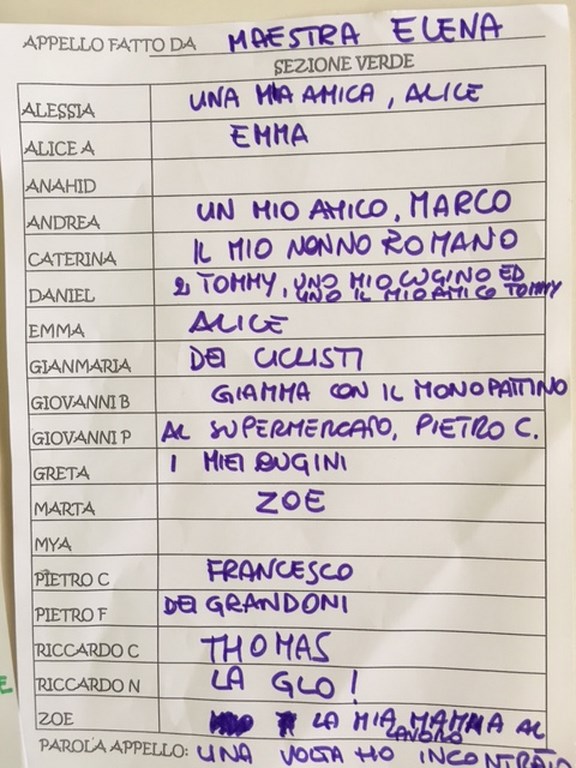 APPELLO FATTO DA MAESTRA ELENA
SEZIONE VERDE
ALESSIA UNA MIA AMICA, ALICE
ALICE A EMMA
ANAHID
ANDREA UN MIO AMICO, MARCO
CATERINA IL MIO NONNO ROMANO
DANIEL 2 TOMMY, UNO MIO CUGINO ED
UNO IL MIO AMICO TOMMY
EMMA ALICE
GIANMARIA DEI CICLISTI
GIOVANNI B GIAMMA CON IL MONOPATTINO
GIOVANNI P AL SUPERMERCATO, PIETRO C.
GRETA I MIEI CUGINI
MARTA ZOE
MYA
PIETRO C FRANCESCO
PIETRO F DEI GRANDONI
RICCARDO C THOMAS
RICCARDO N LA GLO!
ZOE LA MIA MAMMA AL
LAVORO
PAROLA APPELLO: UNA VOLTA HO INCONTRATO
E